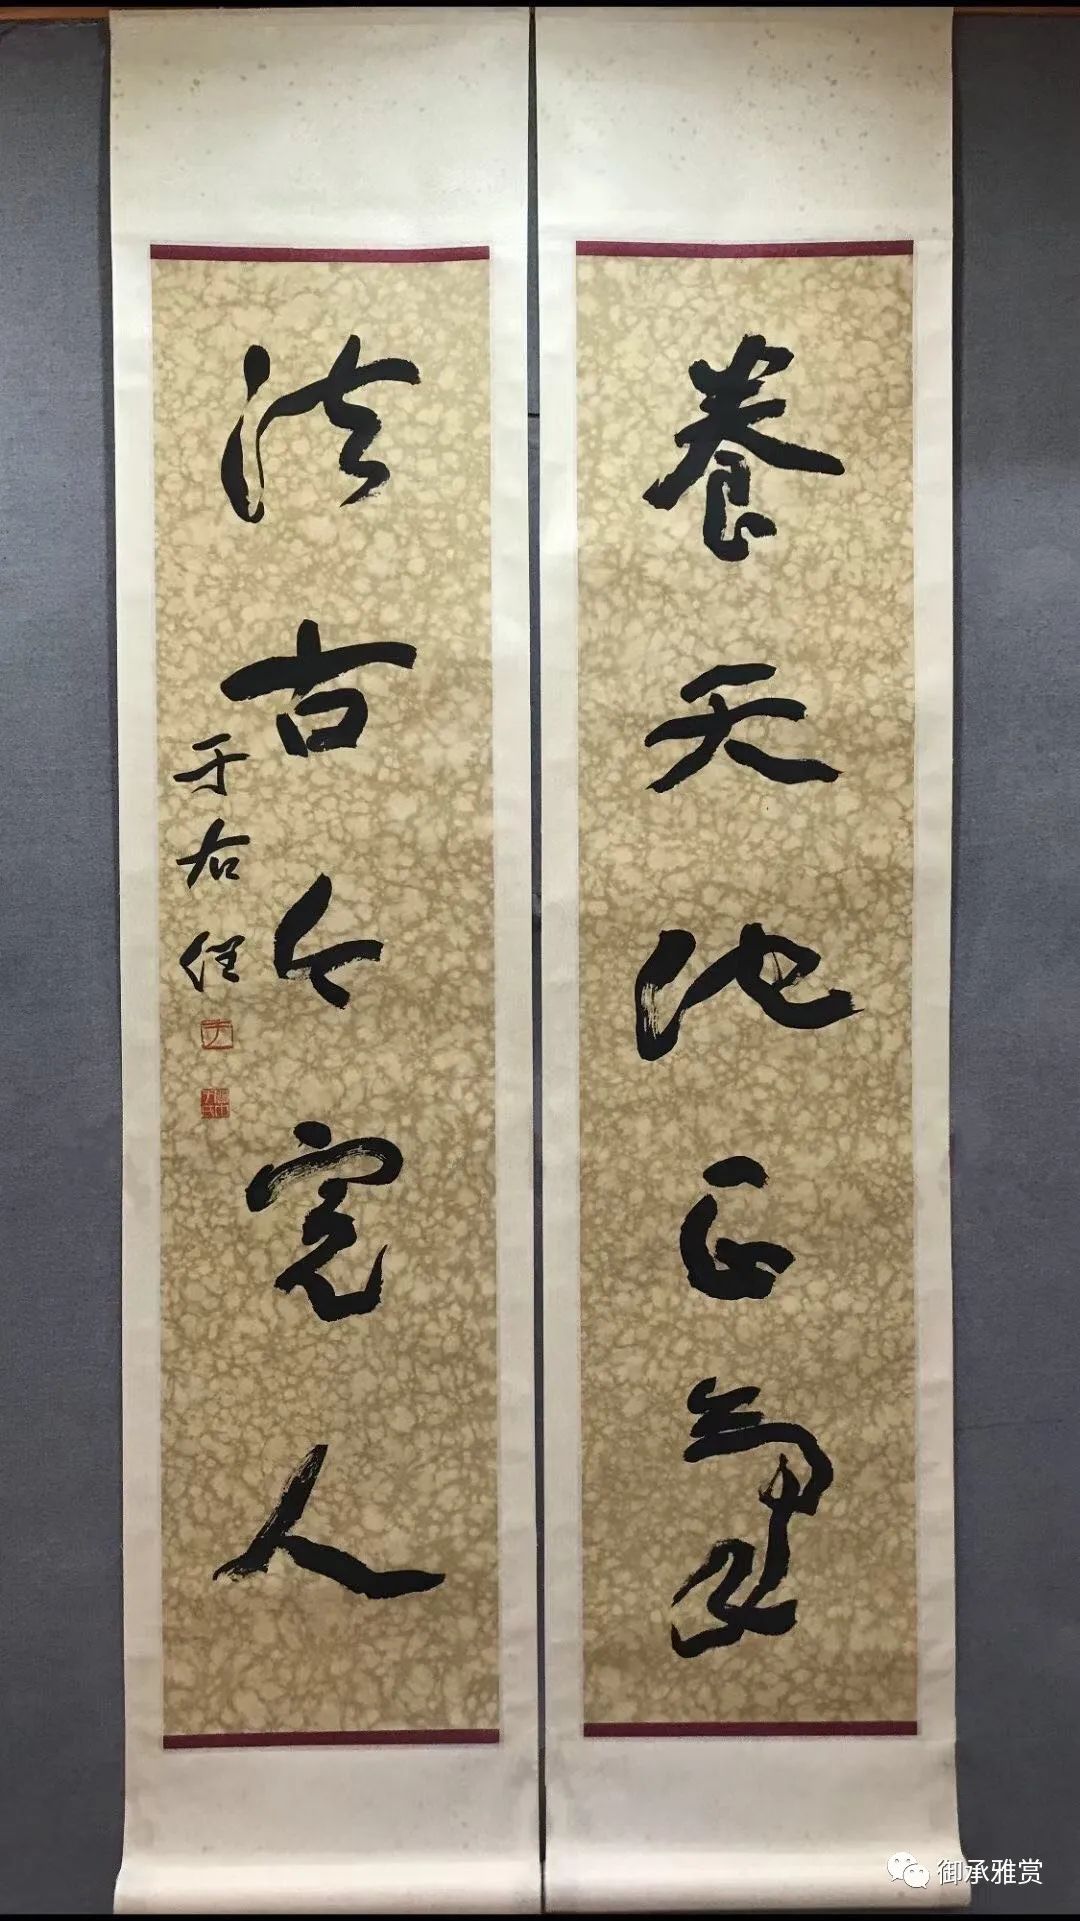 養天地正氣
法古今完人
于右任
御承雅赏